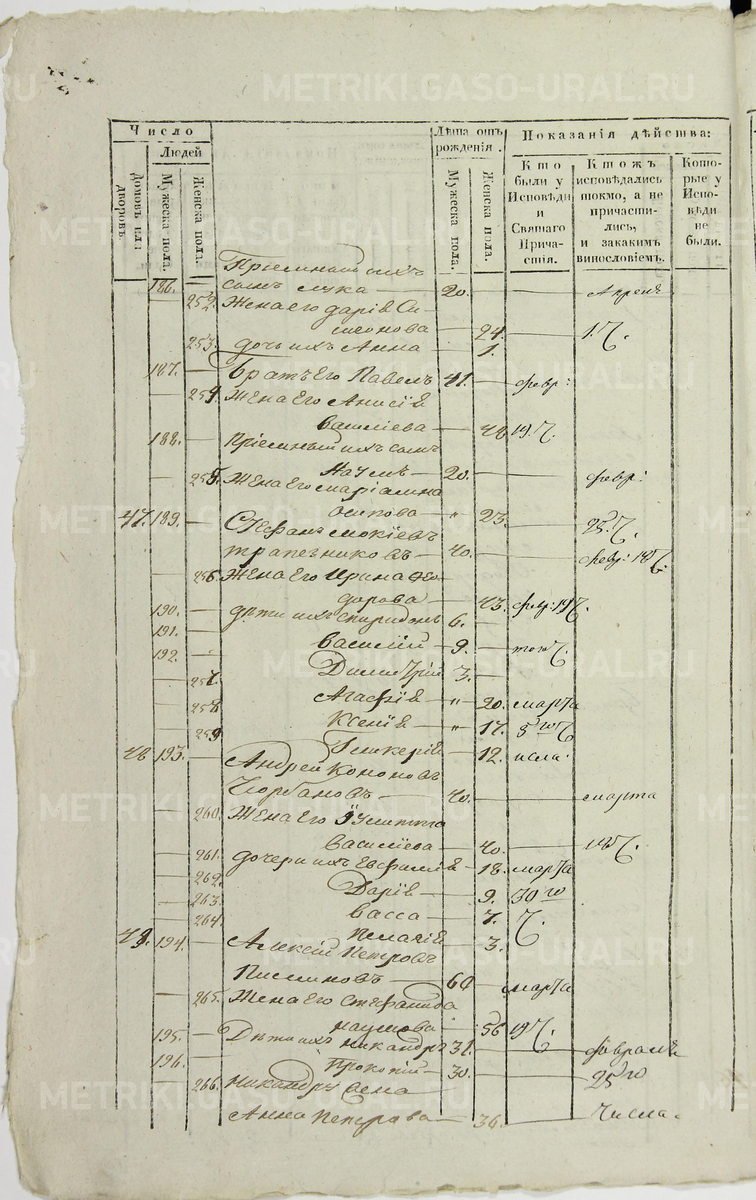 METRIKI.GASO-URAL.RU
Число
Людей
Домовъ или дворовъ
Мужеска пола.
Женска пола.
Лѣта отъ рожденія.
Мужеска пола.
Женска пола.
Показанія дѣйства:
Кто были у Исповѣди и Святаго Причастія.
Ктожъ исповѣдались токмо, а не причастились, и закакимъ винословіемъ.
Которые у Исповѣди не были.
Пріемный ихъ
186. сынъ Лука 20. Апреля
252. Жена его Дарія Си-
меонова 24. 1. Ч.
253. дочь ихъ Анна 1.
187. Братъ Его Павелъ 41. февр:
254. Жена Его Анисія
Василіева 42 19. Ч.
188. Пріемный ихъ сынъ
Наумъ 20. февр:
255. Жена Его Маріамна
Осипова " 23. 25. Ч.
47. 189. Стефанъ Мокіевъ
Трапезниковъ 40. февр: 18 Ч.
256. Жена Его Ирина Фео-
дорова 43. фев: 19 Ч.
190. дѣти ихъ Спиридонъ 6.
191. Василій 9. того Ч.
192. Димитрій 3.
257. Агафія " 20. марта
258. Ксенія " 17. 5 го Ч
259. Гликерія 12. исла.
48 193. Андрей Кононовъ
40. марта
260. Жена Его Іулитта
Василіева 40. 18 Ч.
261. дочери ихъ Евфимія 18. марта
262. Дарія 9. 30 го
263. Васса 7. Ч.
264. Пелагія 3.
49. 194. Алексій Петровъ
60 марта
265. Жена Его Стефанида
Наумова 56 19 Ч.
195. Дѣти ихъ Никандръ 31. февраля
196. Прокопій 30. 25 го
266. Никандръ Жена
Анна Петрова 36. Числа.